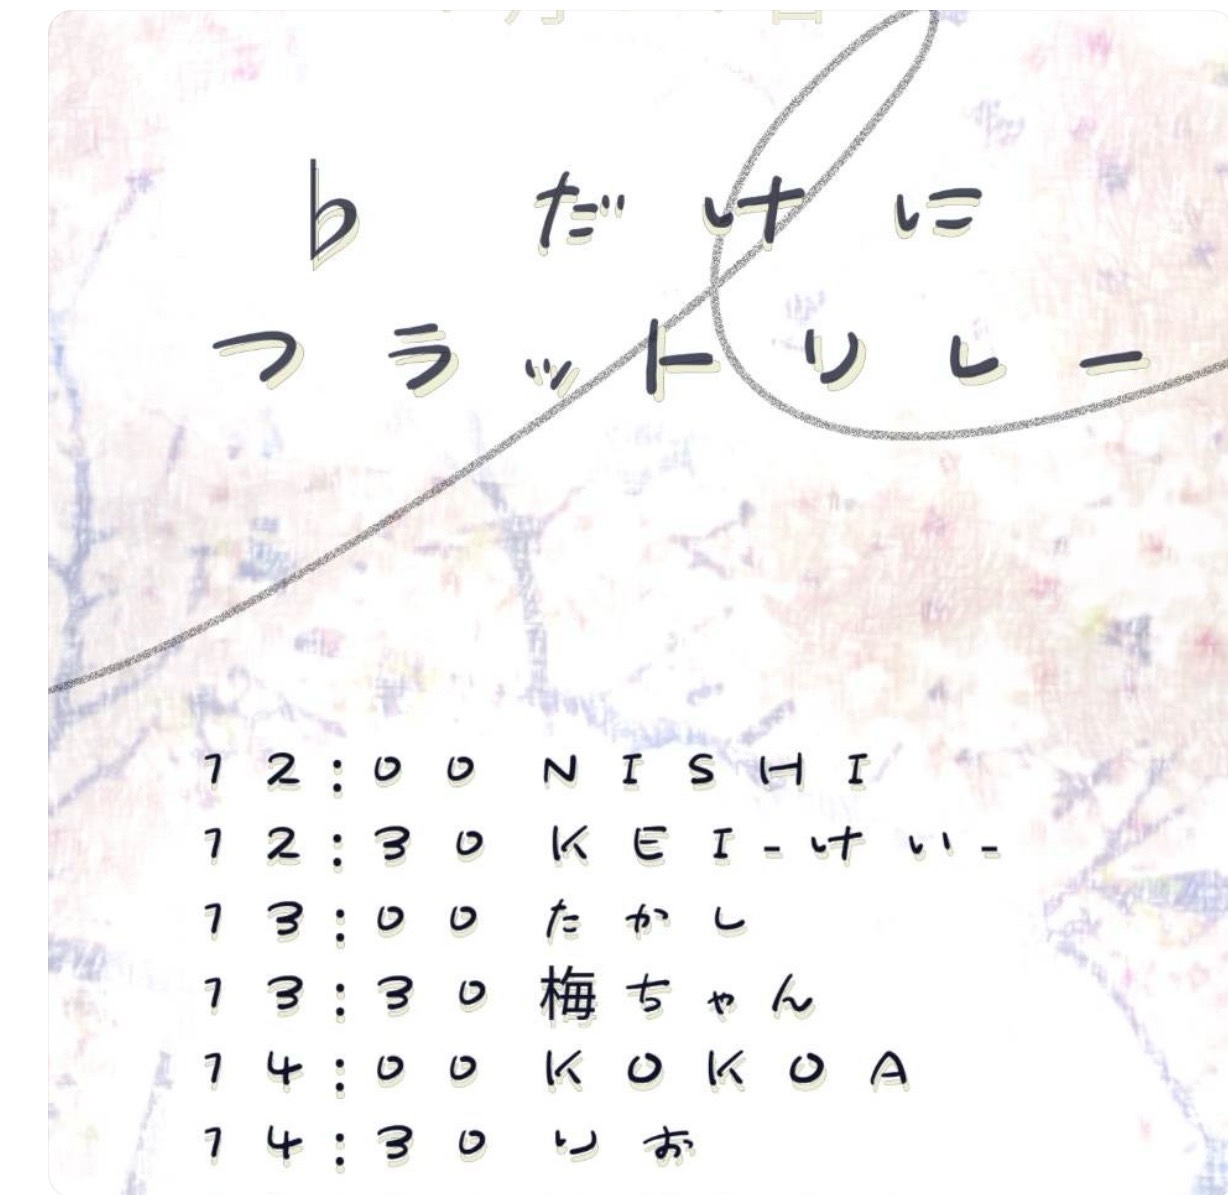 ♭だけに
フラットリレー
12:00 NISHI
12:30 KEI-けい-
13:00 たかし
13:30 梅ちゃん
14:00 KOKOA
14:30 りお